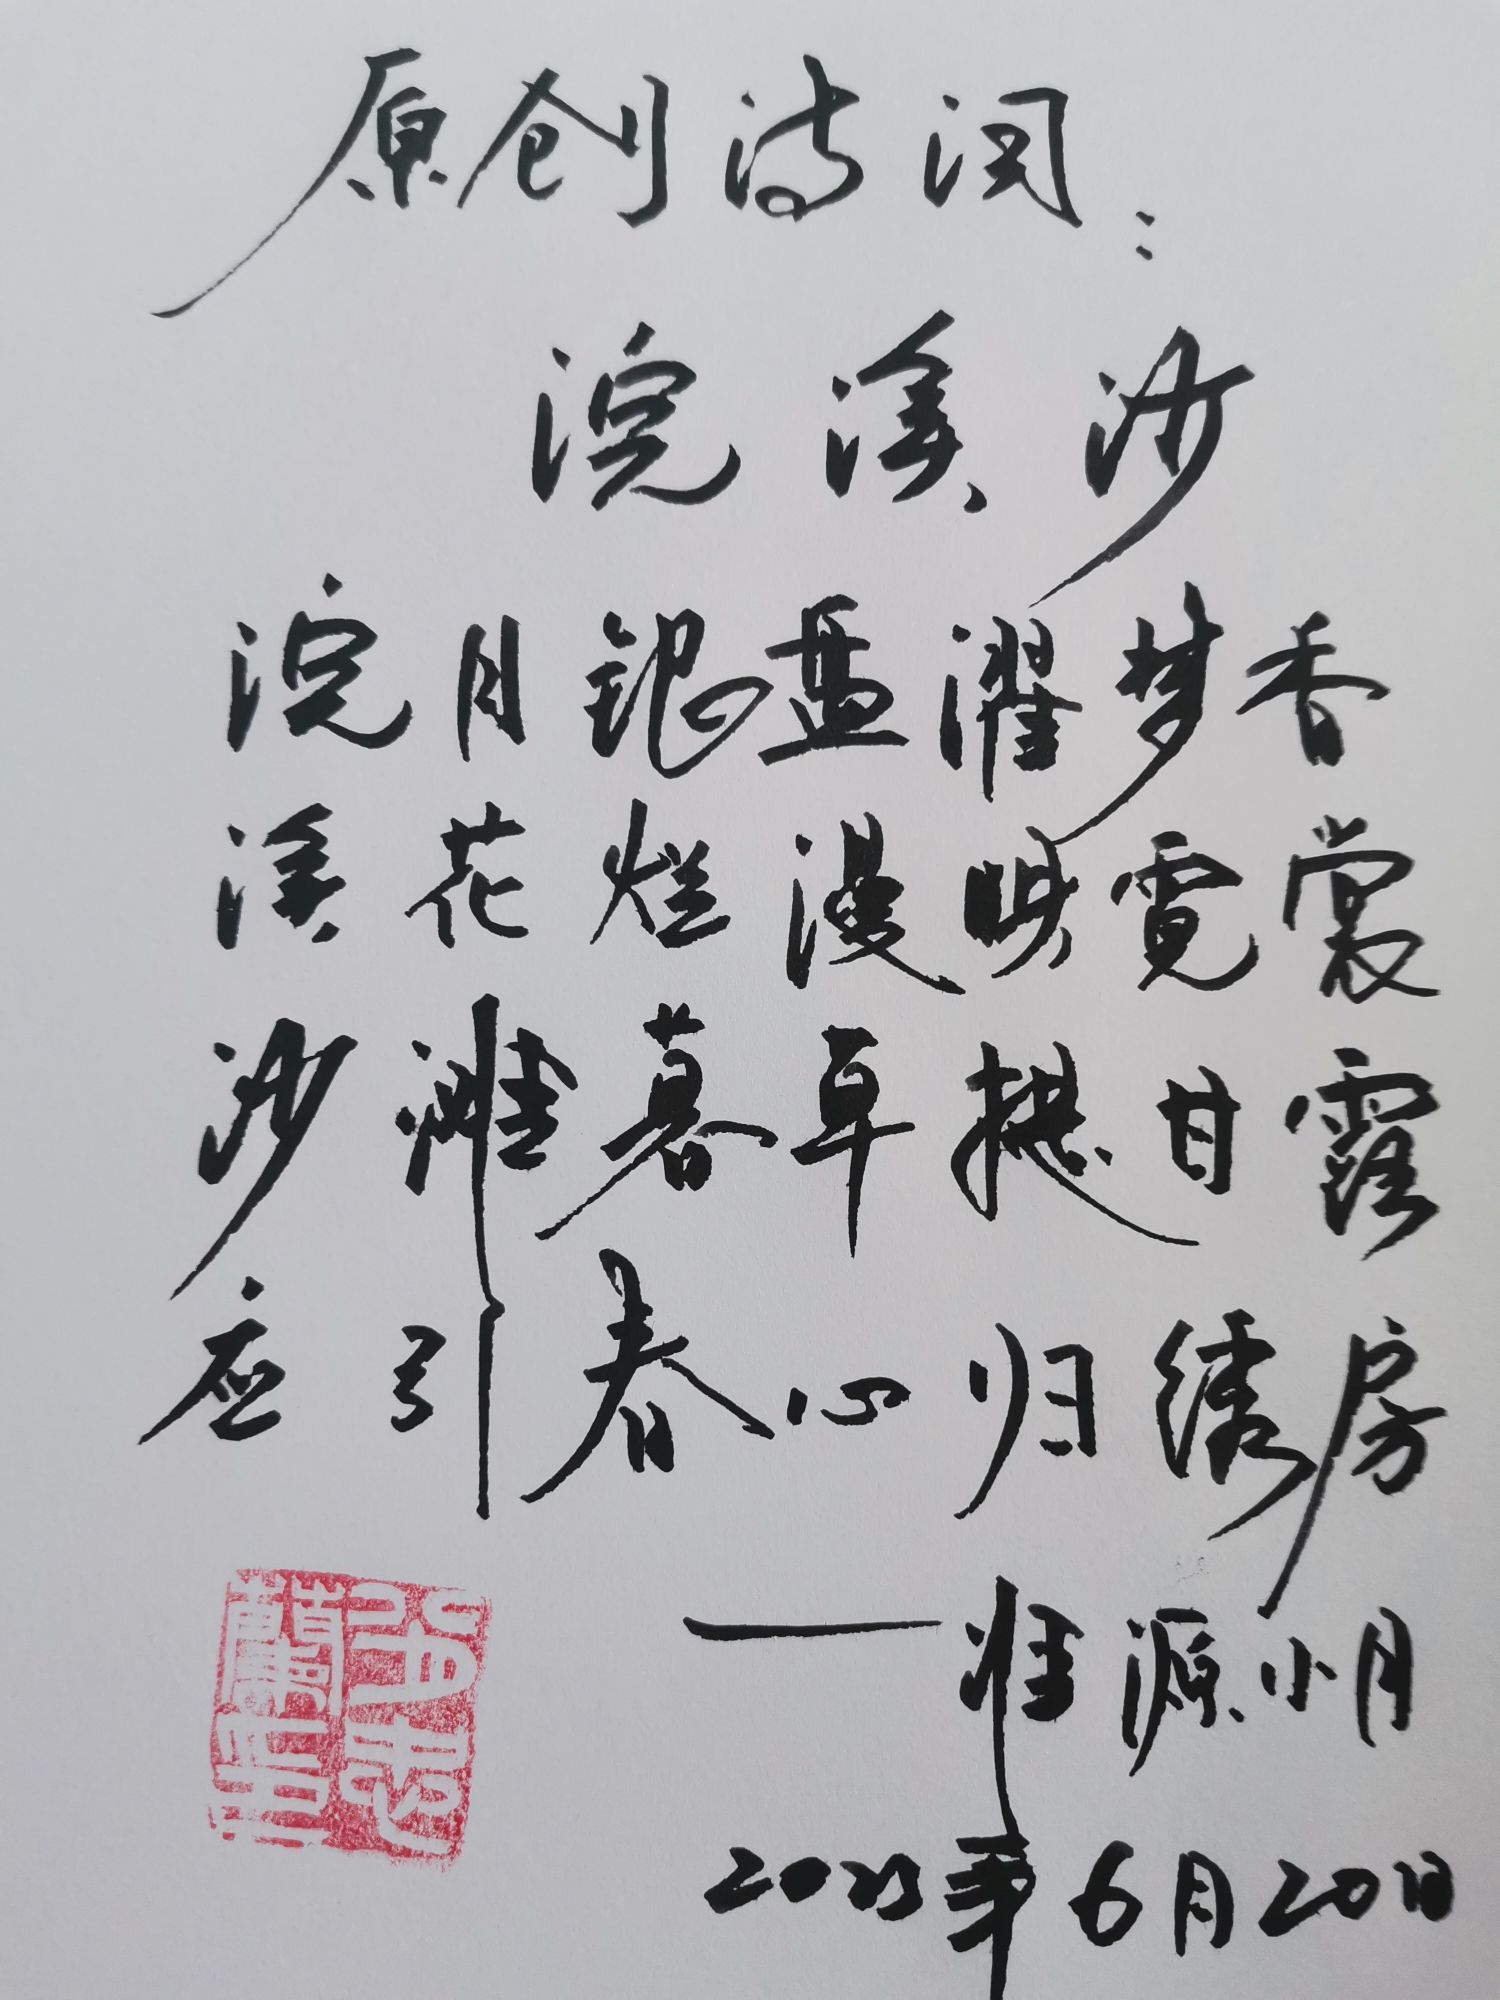 原创诗词：
浣溪沙
浣月银盘濯梦香
溪花烂漫映霓裳
沙滩暮草挹甘露
应引春心归绣房
——淮源小月
2023年6月20日